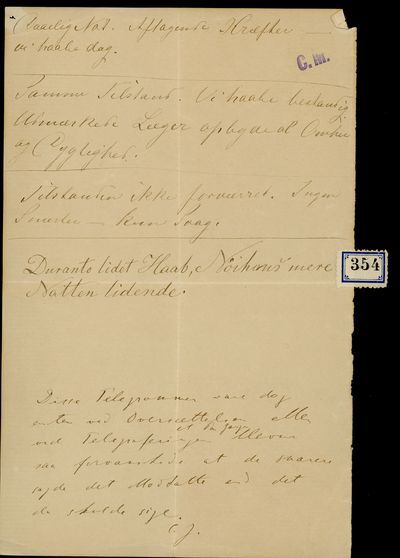 Daarlig Nat. Aftagende Kræfter —
vi haabe dag.
C. M.
Samme Tilstand. Vi haabe bestandig
Udmærkede Læger opbyde al Omhu
og Dygtighed.
Tilstanden ikke forværret. Ingen
Smerter — kun Svag.
354
Duranto lidet Haab,
mere
Natten lidende.
Disse Telegrammer vare dog
enten ved Oversættelsen eller
ved Telegraferingen
saa forvanskede at de snarere
sagde det Modsatte end det
de skulde sige.
C. J.